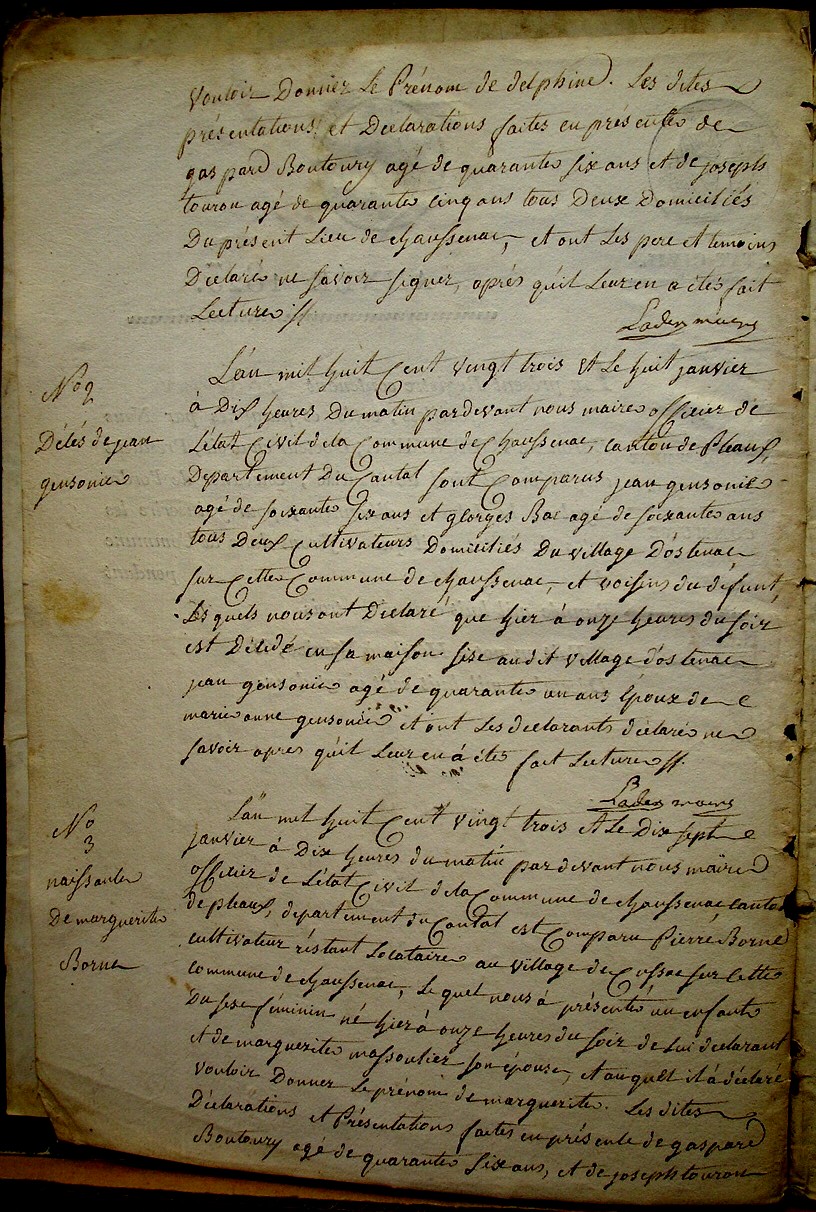 vouloir Donner Le Prénom de delphine. Les dites
présentations et Declarations faites en présence de
gaspard Boutoury agé de quarante six ans et de joseph
touron agé de quarante cinq ans tous Deux Domiciliés
Du présent Lieu de chaussenac, et ont Les pere et temoins
Declaré ne savoir signer, aprés qu'il Leur en a été fait
Lecture //.
maire
N° 2
Décés de jean
gensonie
L'an mil huit Cent vingt trois et Le huit janvier
à Dix heures Du matin pardevant nous maire officier de
L'état Civil de la Commune de Chaussenac, canton de Pleaux,
Departement Du Cantal sont Comparus jean gensonie
agé de soixante six ans et georges Bac agé de soixante ans
tous Deux Cultivateurs Domiciliés Du village D'ostenac
sur Cette Commune de chaussenac, et voisins du défunt,
Lesquels nous ont Declaré que hier à onze heures du soir
est Décédé en sa maison sise au dit village d'ostenac
jean gensonie agé de quarante un ans Époux de
marie anne gensonie et ont Les declarants declaré ne
savoir apres qu'il Leur en á été fait Lecture //.
maire
N° 3
naissance
De marguerite
Borne
L'an mil huit Cent vingt trois et Le Dix sept
janvier à Dix heures du matin par devant nous maire
officier de L'état Civil de la Commune de chaussenac canton
de pleaux, departement du Cantal est Comparu Pierre Borne
cultivateur réstant Locataire au village de Cussac sur Cette
commune de chaussenac, Le quel nous à présenté un enfant
Du sexe féminin né hier à onze heures du soir de Lui declarant
et de marguerite massoulier son épouse, et auquel il à déclaré
vouloir Donner Le prénom de marguerite. Les dites
Déclarations et Présentations faites en présence de gaspard
Boutoury agé de quarante six ans, et de joseph touron